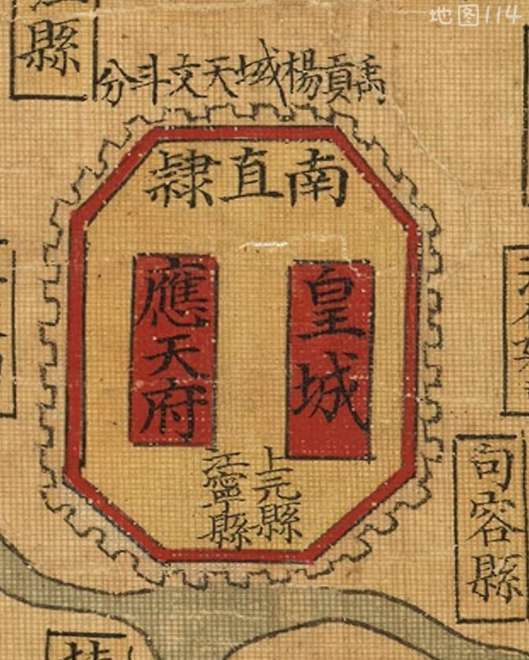 地图114
縣
禹貢楊城天文斗分
南直隸
皇城
應天府
上元縣
江寧縣
句容縣